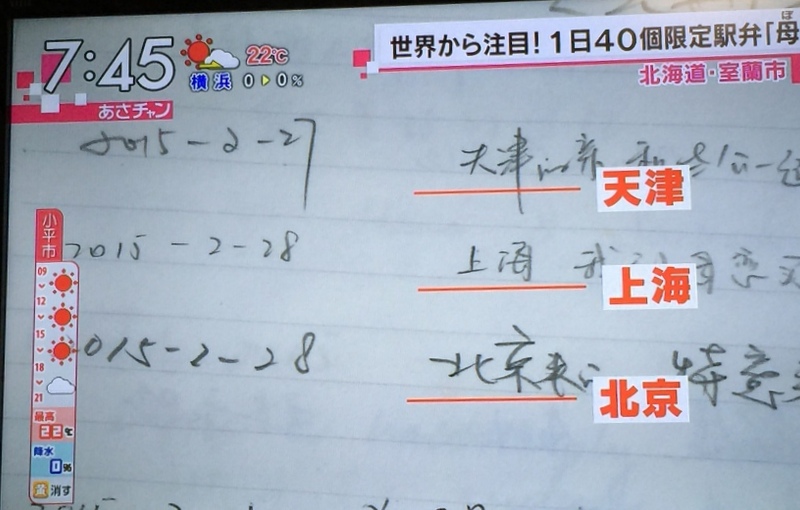 7:45
22℃
横浜 0▶0%
あさチャン
世界から注目!1日40個限定駅弁「母
ぼ
北海道・室蘭市
2015-2-27
天津
天津
小平市
2015-2-28
上海
上海
09
12
15
18
21
2015-2-28
北京来的 特意
北京
最高
22℃
降水
0%
黄 消す